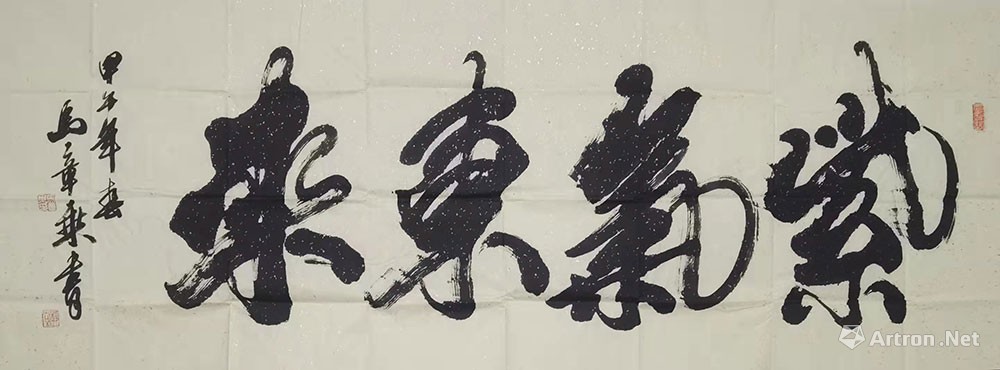 紫氣東來
甲午年春
馬章乘書
Artron.Net